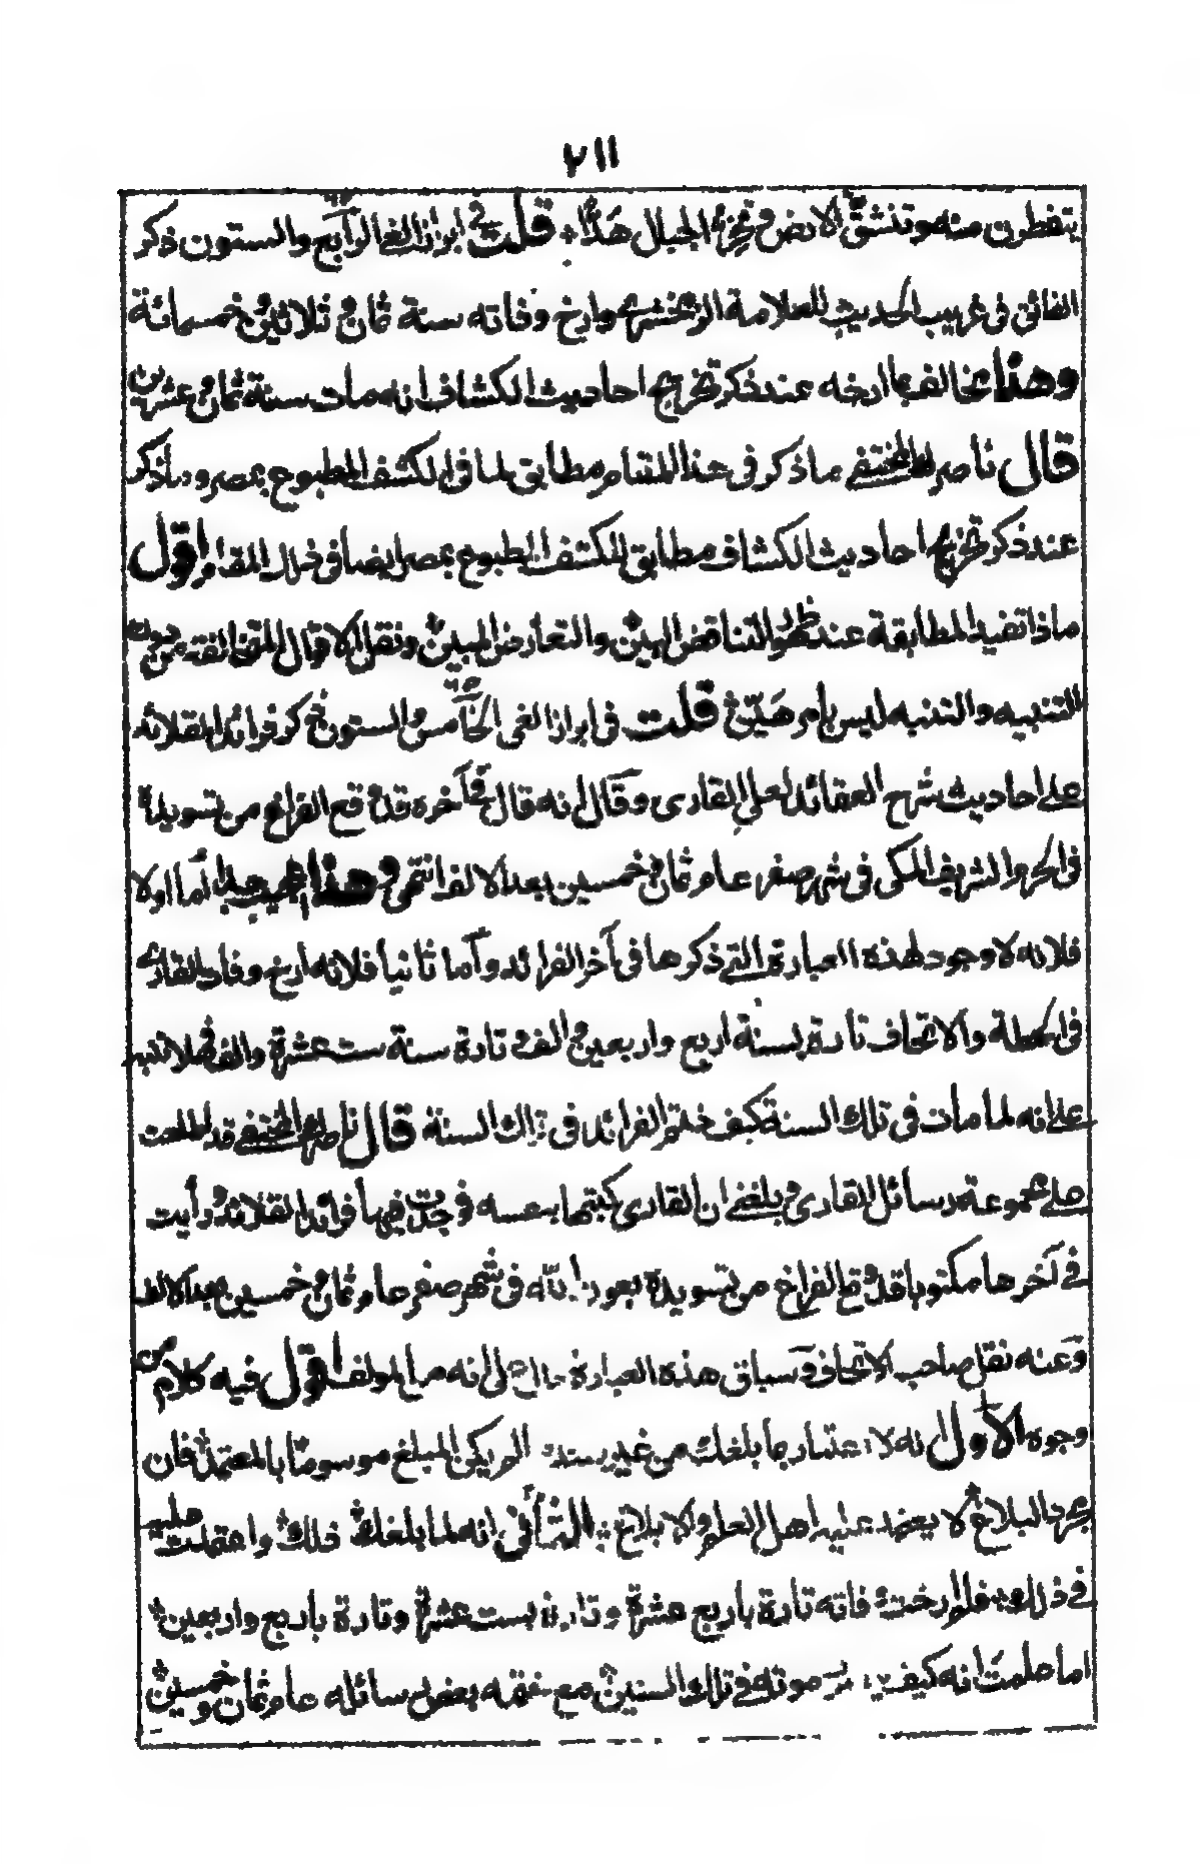 ٢١١
يتفطرن منه وتنشق الارض وتخر الجبال هدا قلت في ابراز الغي الرابع والستون ذكر
الفائق في غريب الحديث للعلامة الزمخشري وارخ وفاته سنة ثمان وثلاثين وخمسمائة
وهذا مخالف لما ارخه عند ذكر تخريج احاديث الكشاف انه مات سنة ثمان وعشرين
قال ناصرك المختفي ما ذكر في هذا المقام مطابق لما في الكشف المطبوع بمصر وما ذكر
عند ذكر تخريج احاديث الكشاف مطابق للكشف المطبوع بمصر ايضا في ذلك المقام اقول
ماذا تفيد المطابقة عند ظهور التناقض البين والتعارض المبين ونقل الاقوال المختلفة من دون
التنبيه والتنبه ليس بامر هين قلت في ابراز الغي الخامس والستون ذكر فرائد القلائد
على احاديث شرح العقائد لعلي القارى وقال انه قال في آخره قد وقع الفراغ من تسويده
في الحرم الشريف المكى في شهر صفر عام ثمان وخمسين بعد الالف انتهى وهذا عجيب جدا اما اولا
فلانه لا وجود لهذه العبارة التي ذكرها في آخر الفرائد وآما ثانيا فلانه ارخ وفات القاري
في الحطة والاتحاف تارة بسنة اربع واربعين والف وتارة سنة ست عشرة والف فهلا تنبه
على انه لما مات في تلك السنة كيف ختم الفرائد في تلك السنة قال ناصرك المختفي قد اطلعت
على مجموعة رسائل القارى وبلغني ان القارى كتبها بنفسه فوجدت فيها فرائد القلائد ورأيت
في آخرها مكتوبا قد وقع الفراغ من تسويده بعون الله في شهر صفر عام ثمان وخمسين بعد الالف
وعنه نقل صاحب الاتحاف وسياق هذه العبارة دال على انه من المولف اقول فيه كلام من
وجوه الاول انه لا اعتماد بما بلغك من غير سند الم يكن المبلغ موسوما بالمعتمد فان
مجرد البلاغ لا يعتمد عليه اهل العلم والابلاغ الثاني انه لما بلغك ذلك واعتمدت عليه
في ذلك فلم ارخت وفاته تارة باربع عشرة وتارة بست عشرة وتارة باربع واربعين
اما علمت انه كيف موته في تلك السنين مع ختمه بعض رسائله عام ثمان وخمسين